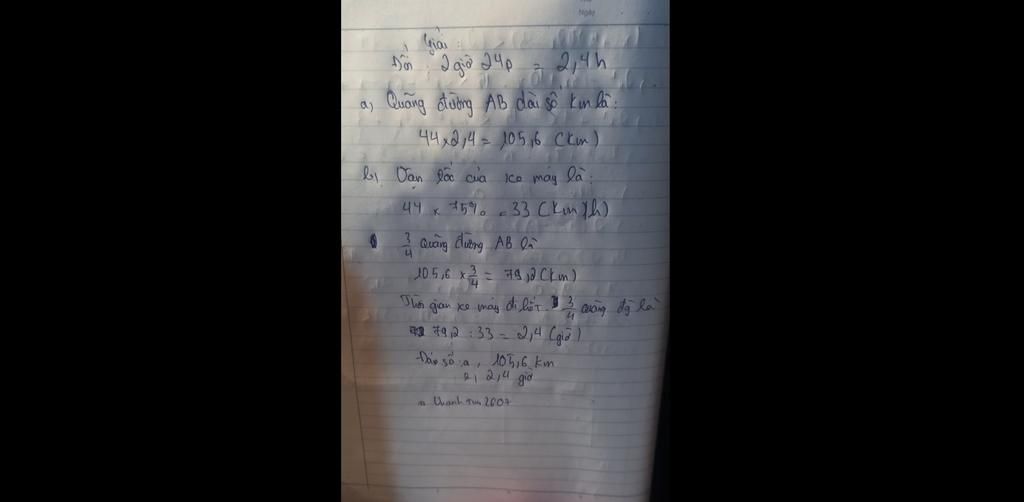 Ngày
Giải:
Đổi: 2 giờ 24p = 2,4h
a, Quãng đường AB dài số km là:
44 x 2,4 = 105,6 (km)
b, Vận tốc của xe máy là:
44 x 75% = 33 (km/h)
3/4 quãng đường AB là
105,6 x 3/4 = 79,2 (km)
Thời gian xe máy đi hết 3/4 quãng đg là
79,2 : 33 = 2,4 (giờ)
Đáp số: a, 105,6 km
2, 2,4 giờ